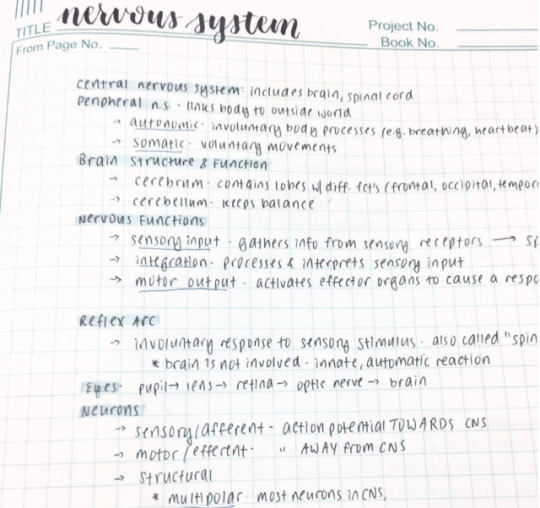 nervous system
TITLE
Project No.
Book No.
From Page No.
central nervous system: includes brain, spinal cord
peripheral n.s - links body to outside world
→ autonomic - involuntary body processes (e.g. breathing, heartbeat)
→ somatic - voluntary movements
Brain Structure & Function
→ cerebrum - contains lobes w/ diff. fct's (frontal, occipital, tempor
→ cerebellum - keeps balance
Nervous Functions
→ sensory input - gathers info from sensory receptors → sp
→ integration - processes & interprets sensory input
→ motor output - activates effector organs to cause a respo
Reflex Arc
→ involuntary response to sensory stimulus - also called "spin
* brain is not involved - innate, automatic reaction
Eyes - pupil → lens → retina → optic nerve → brain
Neurons
→ sensory/afferent - action potential TOWARDS CNS
→ motor/efferent - " AWAY from CNS
→ structural
* multipolar - most neurons in CNS,